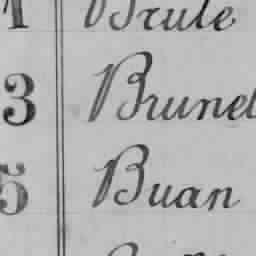 1 Brule
3 Brunet
5 Buan